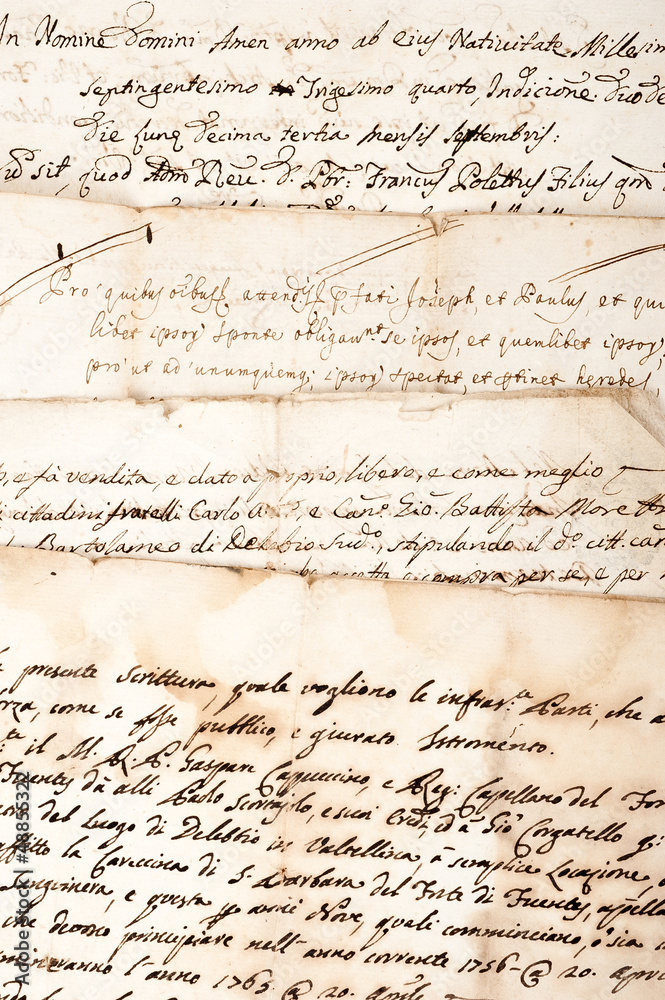 In Nomine Domini Amen anno ab eius Nativitate Millesim
septingentesimo Trigesimo quarto, Indicione. Duode
die Lunę decima tertia mensis septembris:
sit, quod Adm. Reu. D. Pbr: Francus Polettus Filius qm
Pro quibus oībus attendīs pfati Joseph, et Paulus, et qui
libet ipsoȝ sponte obligaunt se ipsos, et quemlibet ipsoȝ,
pro ut ad unumquemq; ipsoȝ spectat, et ptinet heredes,
e fà vendita, e dato a proprio, libero, e come meglio
cittadini fratelli Carlo e Can.º Gio. Battista Morett
Bartolameo di Delebio Sud.º, stipulando il d.º citt. can
per se, e per
presente Scrittura, quale vogliono le infras.te Parti, che
forza, come se fosse pubblico, e giurato Istromento.
il M. R. P. Gaspare Capuccino, e Reg: Capellano del For
Fuentes dà alli Paolo Scortajolo, e suoi Eredi, ed à Gio Corgatello q:
del Luogo di Delebbio in Valtellina, à semplice Locazione,
affitto la Careccina di S. Barbara del Forte di Fuentes, appella
Sanguinera, e questa p anni Nove, quali comminciano, ò sia
che devono principiare nell'anno corrente 1756 @ 20. apri
mineranno l'anno 1765 @ 20. aprile
Adobe Stock
#48855322